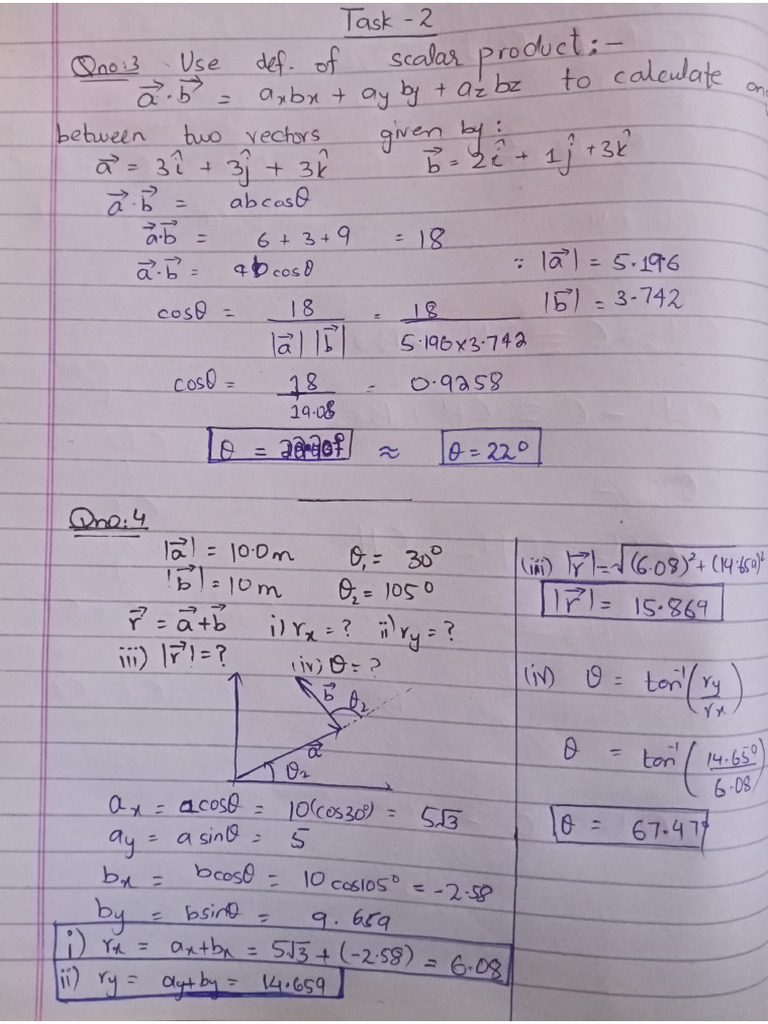 Task - 2
Qno:3 Use def. of scalar product:-
a⃗·b⃗ = axbx + ay by + az bz to calculate
between two vectors given by:
a⃗ = 3î + 3ĵ + 3k̂   b⃗ = 2î + 1ĵ + 3k̂
a⃗·b⃗ = abcosθ
a⃗·b⃗ = 6 + 3 + 9 = 18
a⃗·b⃗ = ab cosθ   ∵ |a⃗| = 5.196
|b⃗| = 3.742
cosθ = 18 / |a⃗| |b⃗| = 18 / 5.196x3.742
cosθ = 18 / 19.08 = 0.9258
θ = ≈ θ = 22°
Qno:4
|a⃗| = 10.0m   θ1 = 30°
|b⃗| = 10m   θ2 = 105°
r⃗ = a⃗+b⃗   i) rx = ?   ii) ry = ?
iii) |r⃗| = ?   (iv) θ = ?
b⃗ θ2
a⃗
θ2
ax = acosθ = 10(cos30°) = 5√3
ay = a sinθ = 5
bx = bcosθ = 10 cos105° = -2.58
by = bsinθ = 9.659
i) rx = ax+bx = 5√3 + (-2.58) = 6.08
ii) ry = ay+by = 14.659
(iii) |r⃗| = √(6.08)² + (14.650)²
|r⃗| = 15.869
(iv) θ = tan⁻¹(ry/rx)
θ = tan⁻¹(14.650/6.08)
θ = 67.47°